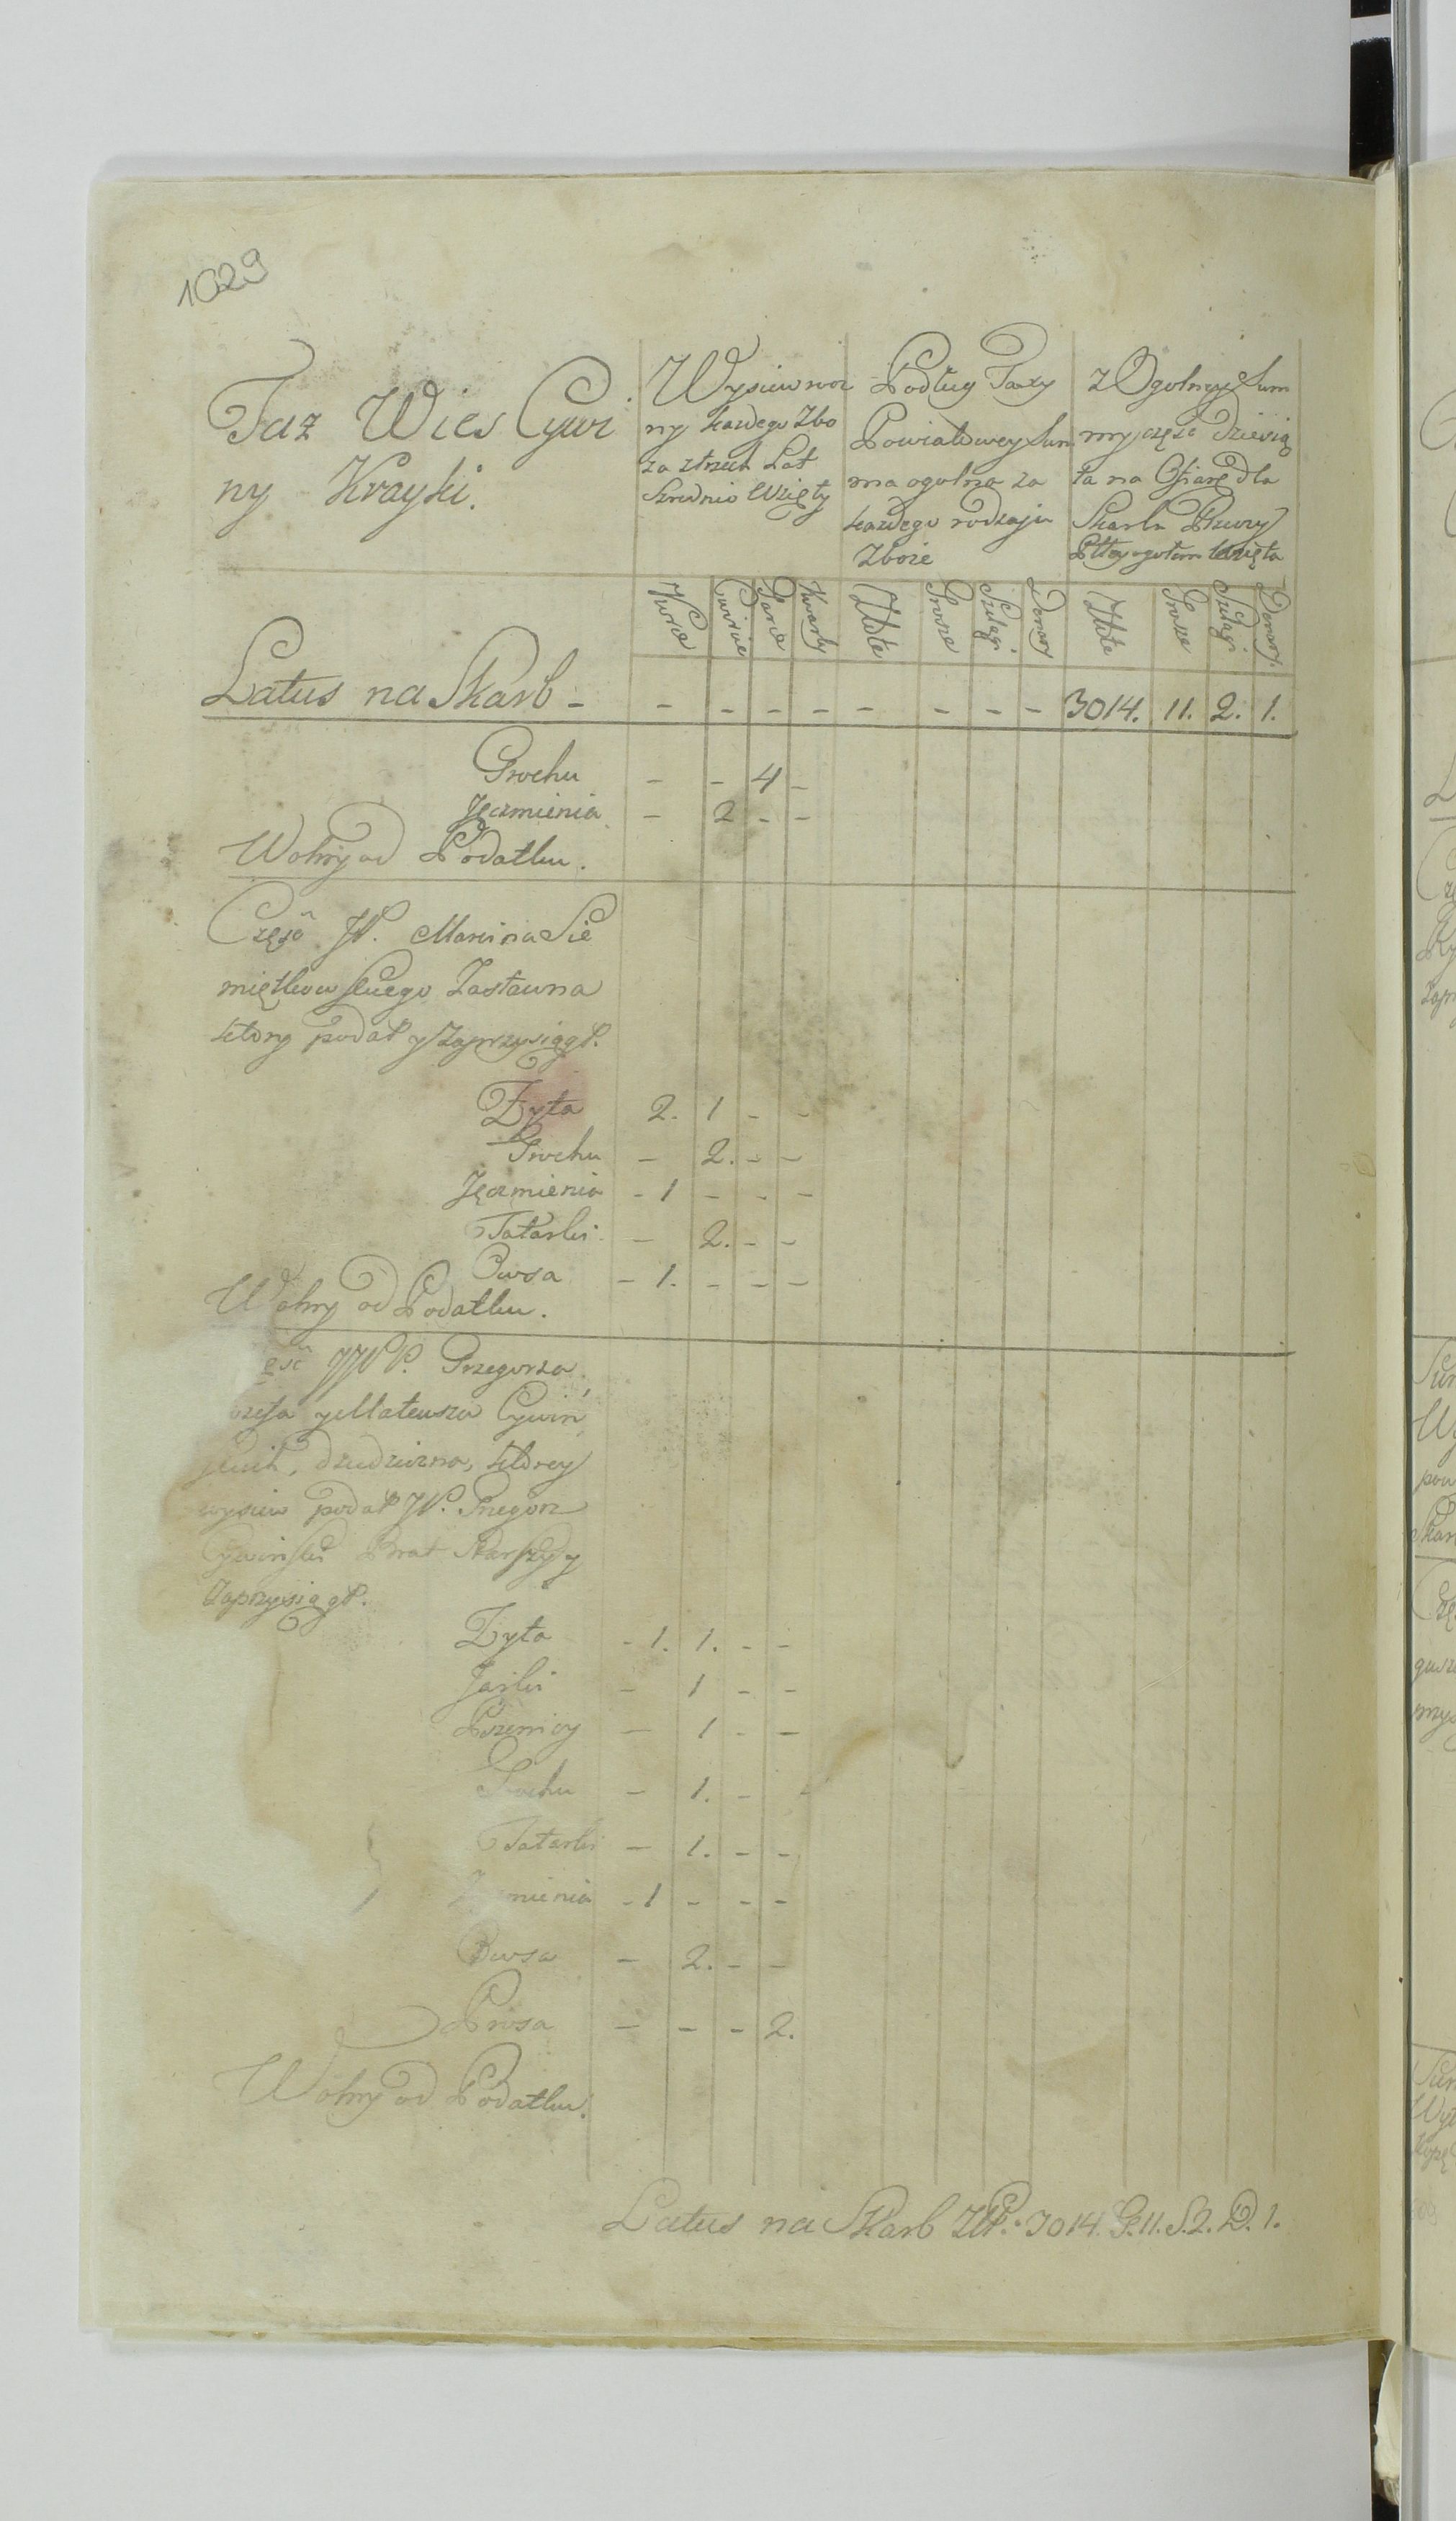 1029
Taz Wies Cywi
ny Krayki.
Wysiew roz
ny kazdego Zbo
za ztrzech Lat
Szrednio wzięty
Podług Taxy
Powiatowey Sum
ma ogolna za
kazdego rodzaju
Zboze
z Ogolney Sum
my część Dziesią
ta na Ofiarę dla
Skarbu Rzeczy
Pltey ogołem wzięta
Korce Cwierce Garce Kwarty Złote Grosze Szelągi Denary Złote Grosze Szelągi Denary.
Latus na Skarb - - - - - - - - - 3014. 11. 2. 1.
Grochu - - 4 -
Jęczmienia - 2 - -
Wolny od Podatku.
Część JP. Marcina Sie
miętkowskiego Zastawna
ktory podał y Zaprzysiągł.
Zyta 2. 1 - -
Grochu - 2. - -
Jęczmienia - 1 - - -
Tatarki - 2. - -
Owsa - 1. - - -
Wolny od Podatku.
ęść JJPP. Grzegorza,
ozefa y Mateusza Cywiń
skich, dziedziczna, ktorey
wysiew podał JP. Grzegorz
Cywiński Brat Starszy y
Zaprzysiągł.
Zyta - 1. 1. - -
Jarki - 1 - -
Pszenicy - 1 - -
Grochu - 1. - -
Tatarki - 1. - -
mienia - 1 - - -
Owsa - 2. - -
Prosa - - - 2.
Wolny od Podatku.
Latus na Skarb ZłP. 3014. G. 11. S. 2. D. 1.